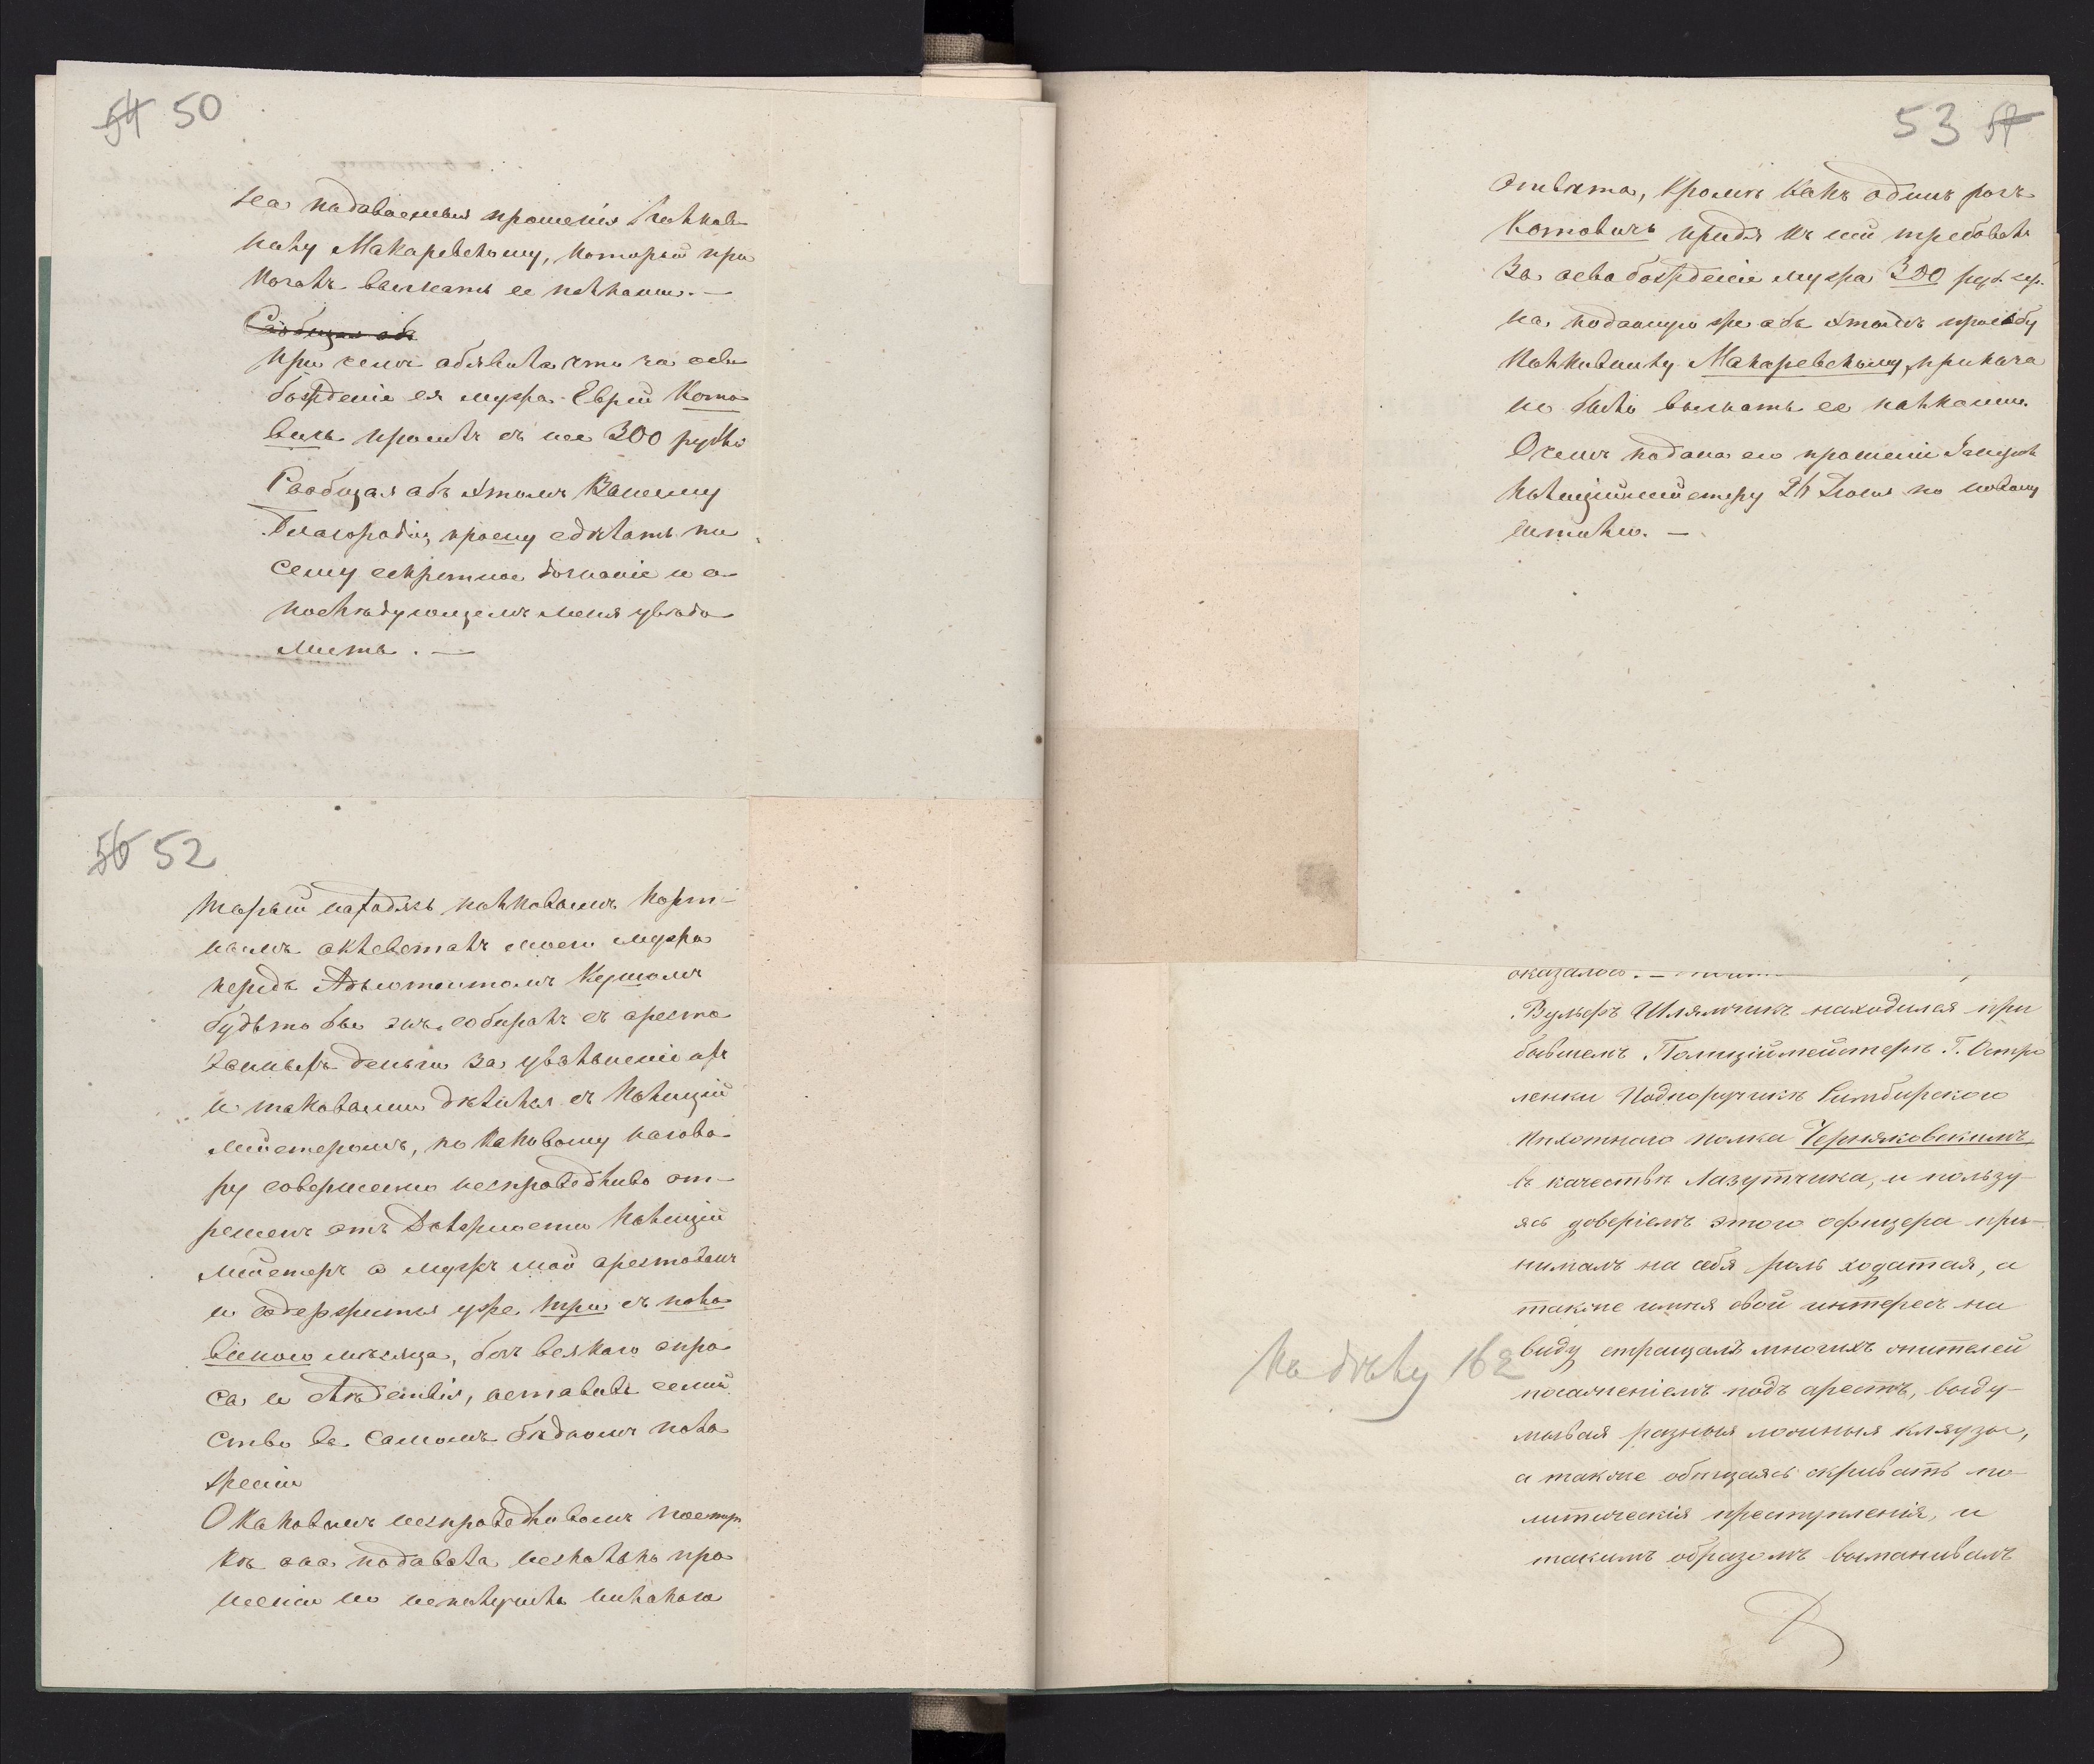 54 50
на подаваемыя прошенія Полков
нику Макаревскому, который при
казалъ выгнать ее палками. —
Сообщая об
при чемъ объявила что за осво
божденіе ея мужа Еврей Кото
вичь проситъ съ нее 300 рублей
Сообщая объ этомъ Вашему
Благородію, прошу сдѣлать по
сему секретное дознаніе и о
послѣдующемъ меня увѣдо
мить. —
56 52
торый находясь полковымъ порт-
нымъ оклеветалъ моего мужа
передъ Адьютантомъ
будьто бы онъ собиралъ съ аресто
ванныхъ деньги за увольненіе ихъ
и таковыми дѣлился съ Полицій
мейстеромъ, по каковому нагово
ру совершенно несправедливо от-
решенъ отъ Должности Полицій
мейстеръ а мужъ мой арестованъ
и содержится уже три съ поло
виною мѣсяца, безъ всякаго спро
са и слѣдствія, оставивъ семей
ство въ самомъ бѣдномъ поло
женіи
О каковомъ несправедливомъ поступ
кѣ она подавала несколько про
шеніи но неполучила никакого
53 57
отвѣта, кромѣ какъ одинъ разъ
Котовичь придя къ ней требовалъ
за освобожденіе мужа 300 руб. сер.
на поданную же объ этомъ прозьбу
Полковнику Макаревскому, приказа
но было выгнать ее палками.
О чемъ подано ею прошеніе
Полиціймейстеру 26 Іюля по новому
штилю. —
оказалось. —
Вульфъ Шлямчикъ находился при
бывшемъ Полиціймейстерѣ Г. Остро
ленки Подпоручикѣ Симбирского
Пѣхотнаго полка Черняковскимъ
въ качествѣ Лазутчика, и пользу-
ясь довѣріемъ этого офицера при-
нималъ на себя роль ходатая, а
также имѣя свой интересъ на
виду стращалъ многихъ жителей
посаженіемъ подъ арестъ, выду-
мывая разныя ложныя кляузы,
а также обѣщаясь скрывать по
литическія преступленія, и
такимъ образомъ выманивалъ
Къ дѣлу 162